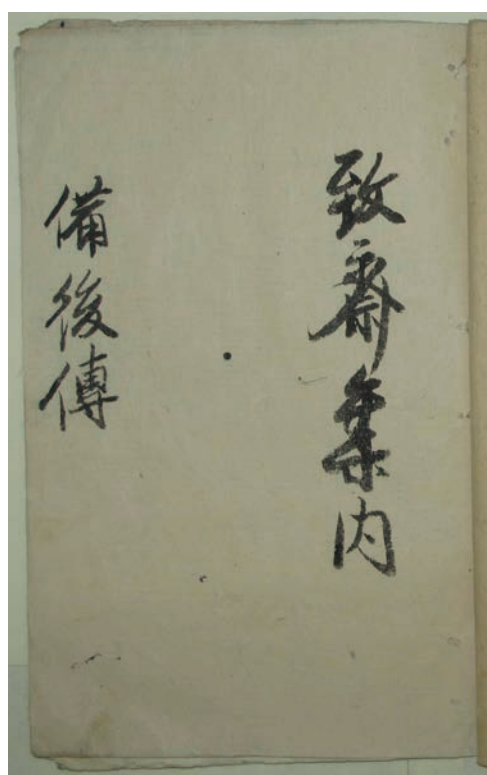 致齋集内
備後傳